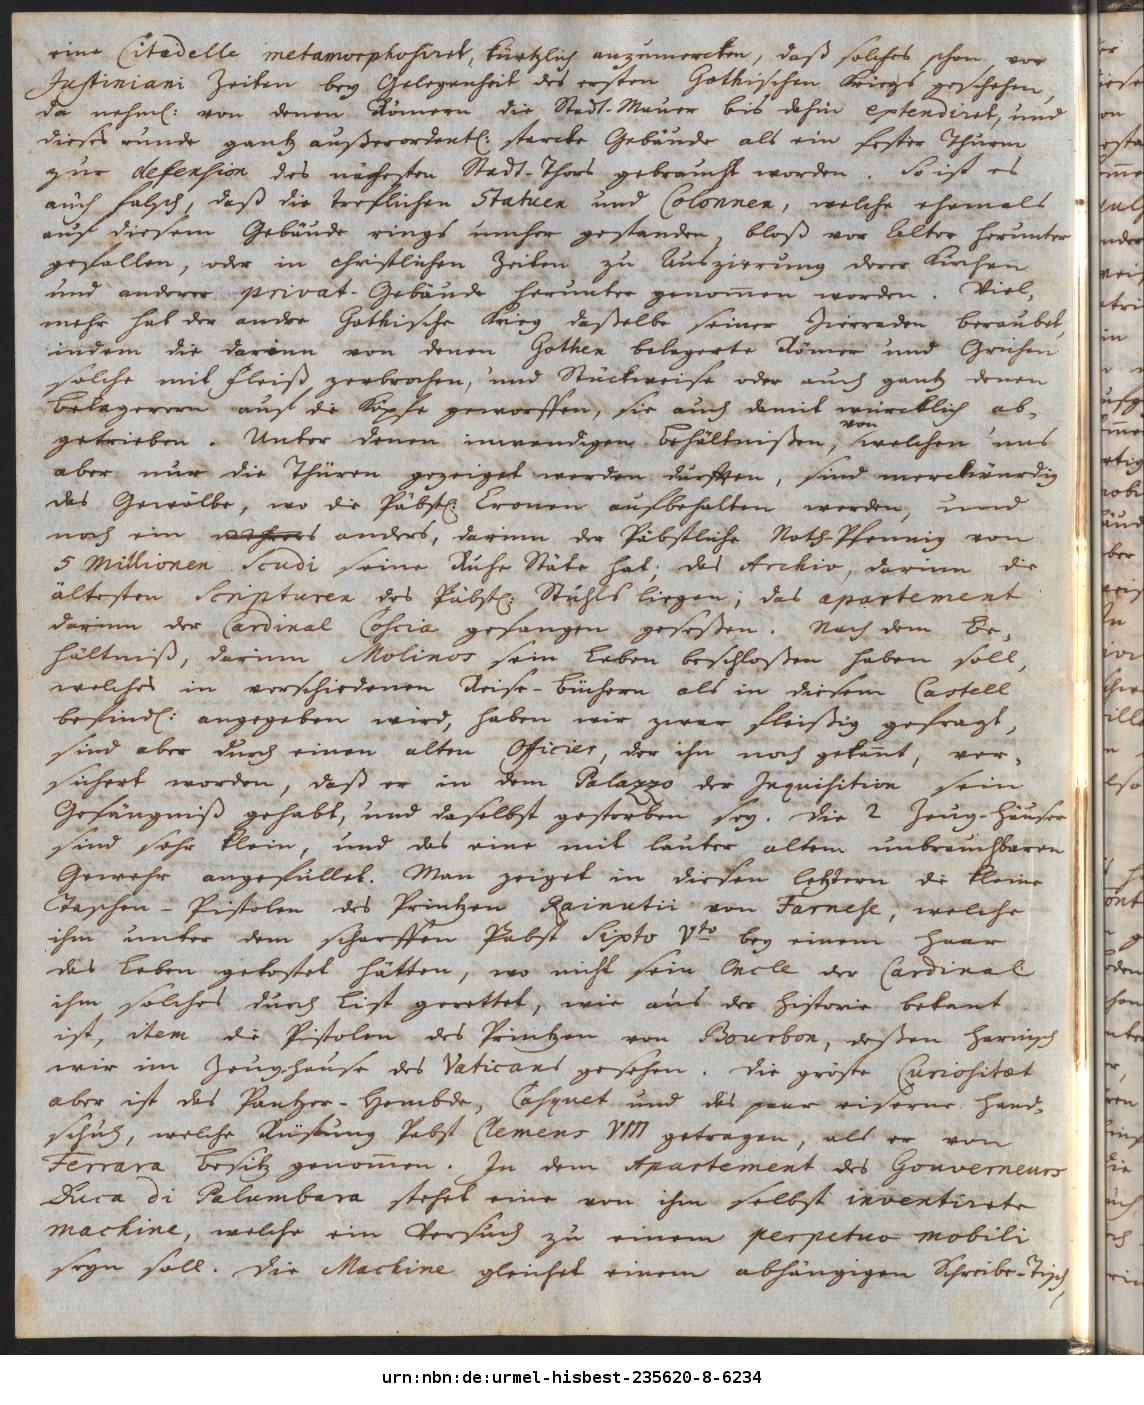 eine Citadelle metamorphosiret, kürtzlich anzumercken, daß solches schon vor
Justiniani Zeiten bey Gelegenheit des ersten Gothischen Kriegs geschehen,
da nehml: von denen Römern die Stadt-Mauer bis dahin extendiret, und
dieses runde gantz außerordentl: starcke Gebäude als ein fester Thurm
zur defension des nächsten Stadt-Thors gebraucht worden. So ist es
auch falsch, daß die trefflichen Statuen und Colonnen, welche ehemals
auf diesem Gebäude rings umher gestanden, bloß vor Alter herunter
gefallen, oder in christlichen Zeiten zu Auszierung derer Kirchen
und anderer privat-Gebäude herunter genom̄en worden. Viel-
mehr hat der andre Gothische Krieg daßelbe seiner Zierraden beraubet,
indem die darinn von denen Gothen belagerte Römer und Grichen
solche mit Fleiß zerbrochen, und Stückweise oder auch gantz denen
Belagerern auf die Köpfe geworffen, sie auch damit würcklich ab-
getrieben. Unter denen inwendigen Behältnißen, von welchen uns
aber nur die Thüren gezeiget werden durfften, sind merckwürdig
das Gewölbe, wo die Päbstl: Cronen aufbehalten werden, und
noch ein anders, darinn der Päbstliche Noth-Pfennig von
5 Millionen Scudi seine Ruhe Stäte hat; das Archiv, darinn die
ältesten Scripturen des Päbstl: Stuhls liegen; das apartement
darinn der Cardinal Coscia gefangen geseßen. Nach dem Be-
hältniß, darinn Molinos sein Leben beschloßen haben soll,
welches in verschiedenen Reise-Büchern als in diesem Castell
befindl: angegeben wird, haben wir zwar fleißig gefragt,
sind aber durch einen alten Officier, der ihn noch gekan̄t, ver-
sichert worden, daß er in dem Palazzo der Inquisition sein
Gefängniß gehabt, und daselbst gestorben sey. Die 2 Zeug-Häuser
sind sehr klein, und das eine mit lauter altem unbrauchbaren
Gewehr angefüllet. Man zeiget in diesen letztern die kleine
Taschen-Pistolen des Printzen Rainutii von Farnese, welche
ihm unter dem scharffen Pabst Sixto Vto bey einem Haar
das Leben gekostet hätten, wo nicht sein Oncle der Cardinal
ihm solches durch List gerettet, wie aus der Historie bekant
ist, item die Pistolen des Printzen von Bourbon, deßen Harnisch
wir im Zeughause des Vaticans gesehen. Die gröste Curiositæt
aber ist das Pantzer-Hembde, Casquet und das paar eiserne Hand-
schuh, welche Rüstung Pabst Clemens VIII getragen, als er von
Ferrara Besitz genom̄en. In dem Apartement des Gouverneurs
Duca di Palumbara stehet eine von ihm selbst inventirete
machine, welche ein Versuch zu einem perpetuo mobili
seyn soll. Die Machine gleichet einem abhängigen Schreibe-Tisch,
urn:nbn:de:urmel-hisbest-235620-8-6234